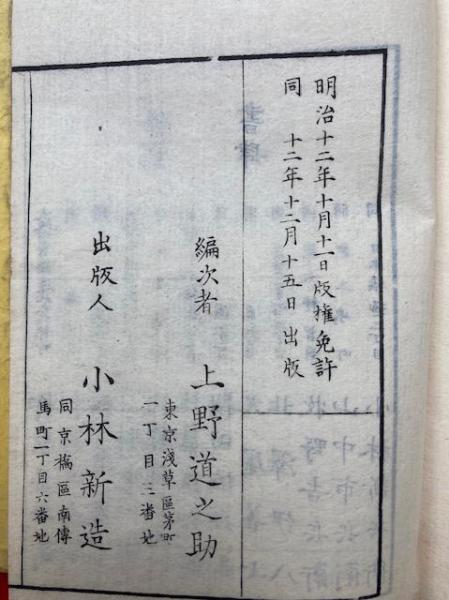 明治十二年十月十一日版權免許
同 十二年十二月十五日出版
編次者 上野道之助
東京淺草區茅町
一丁目三番地
出版人 小林新造
同京橋區南傳
馬町一丁目六番地